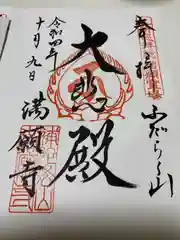 奉拝
ふだらく山
大悲殿
満願寺
令和四年
十月九日